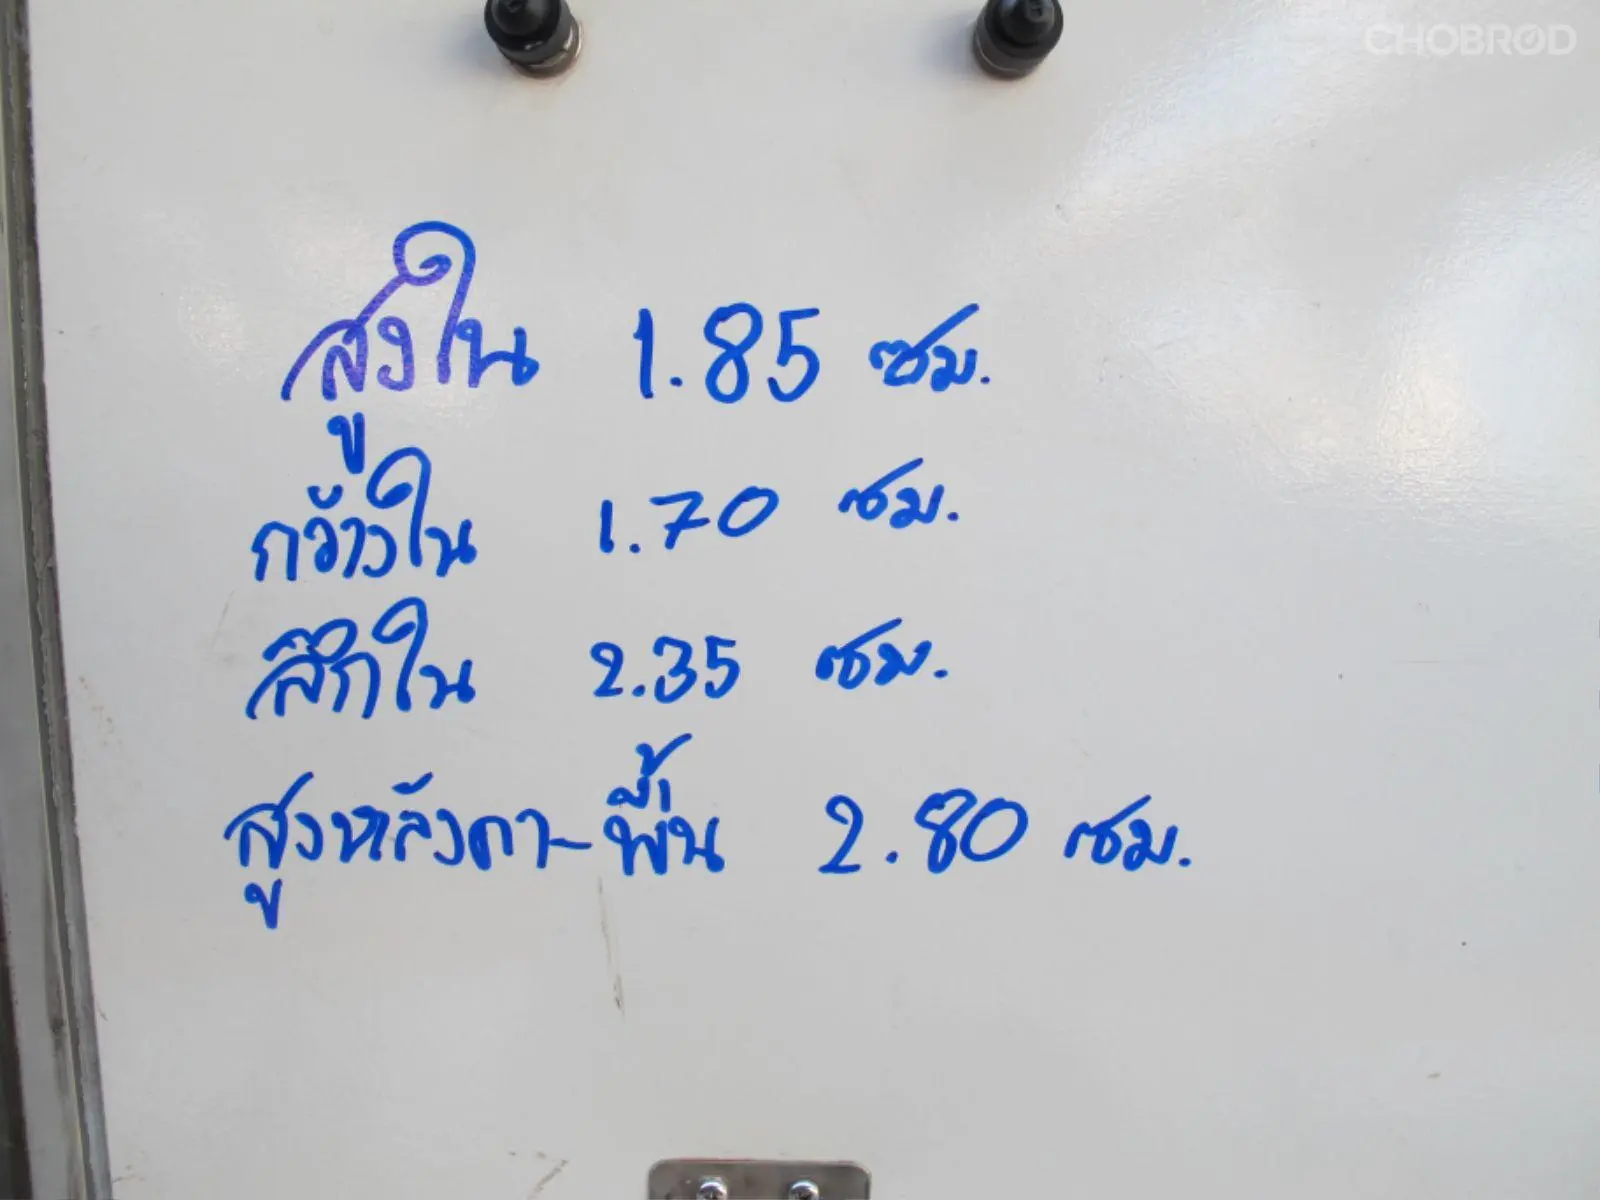 CHOBROD
สูงใน 1.85 ซม.
กว้างใน 1.70 ซม.
ลึกใน 2.35 ซม.
สูงหลังคา-พื้น 2.80 ซม.